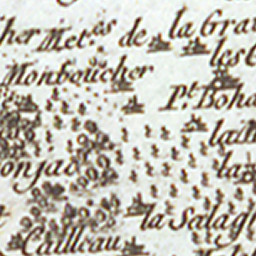 her Met.es de la Gra
les
Monboucher
P.t Boha
la
la
onjas
la Salag
Cailleau